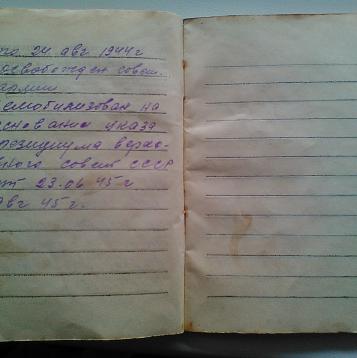 по 24 авг 1944 г
освобожден совет.
армии
емобилизован на
сновании указа
резидиума верхо-
вного совет СССР
от 23.06 45 г
авг 45 г.